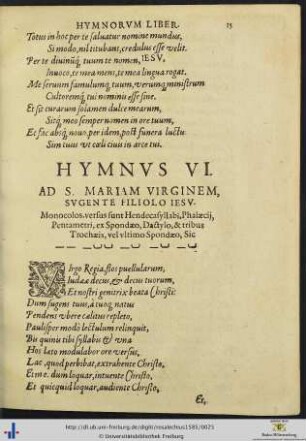 HYMNORVM LIBER. 15
Totus in hoc per te saluatur nomine mundus,
Si modo, nil titubans, credulus esse velit.
Per te diuinūq́; tuum te nomen, IESV,
Inuoco, te mea mens, te mea lingua rogat.
Me seruum famulumq́; tuum, verumq́; ministrum
Cultoremq́; tui nominis esse sine.
Et sit curarum solamen dulce mearum,
Sitq́; meo semper nomen in ore tuum,
Et fac absq́; nouo, per idem, post funera luctu
Sim tuus vt cœli ciuis in arce tui.
HYMNVS VI.
AD S. MARIAM VIRGINEM,
SVGENTE FILIOLO IESV.
Monocolos. versus sunt Hendecasyllabi, Phalæcij,
Pentametri, ex Spondæo, Dactylo, & tribus
Trochæis, vel vltimo Spondæo, Sic
VIrgo Regia, flos puellularum,
Iudææ decus, & decus tuorum,
Et nostri genitrix beata Christi:
Dum sugens tuus, á tuo q́; natus
Pendens vbere cælitus repleto,
Paulisper modò lectulum relinquit,
Bis quinis tibi syllabis & vna
Hos lætò modulabor ore versus,
Lac, quod perbibat, extrahente Christo,
Et me, dum loquar, intuente Christo,
Et quicquid loquar, audiente Christo,
Et,
http://dl.ub.uni-freiburg.de/diglit/modechius1585/0023
© Universitätsbibliothek Freiburg
Baden-Württemberg